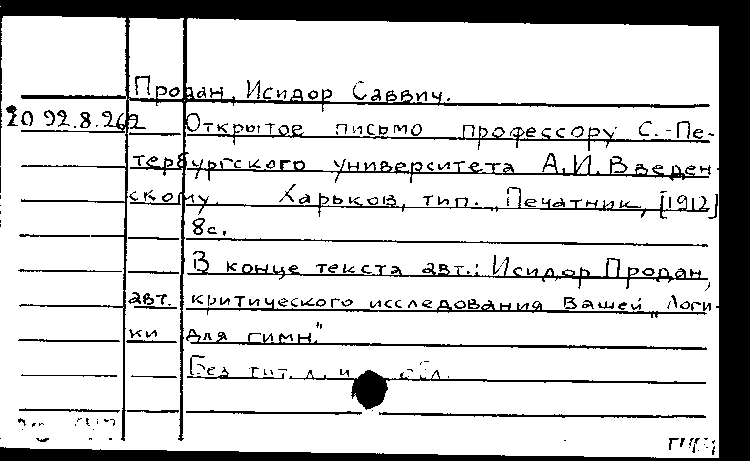 Продан, Исидор Саввич.
20 92.8.262 Открытое письмо профессору С.-Пе-
тербургского университета А.И.Введен-
скому. Харьков, тип. „Печатник, [1912]
8с.
В конце текста авт.: Исидор Продан,
авт. критического исследования Вашей „Логи-
ки для гимн."
Без тит. л. и обл.